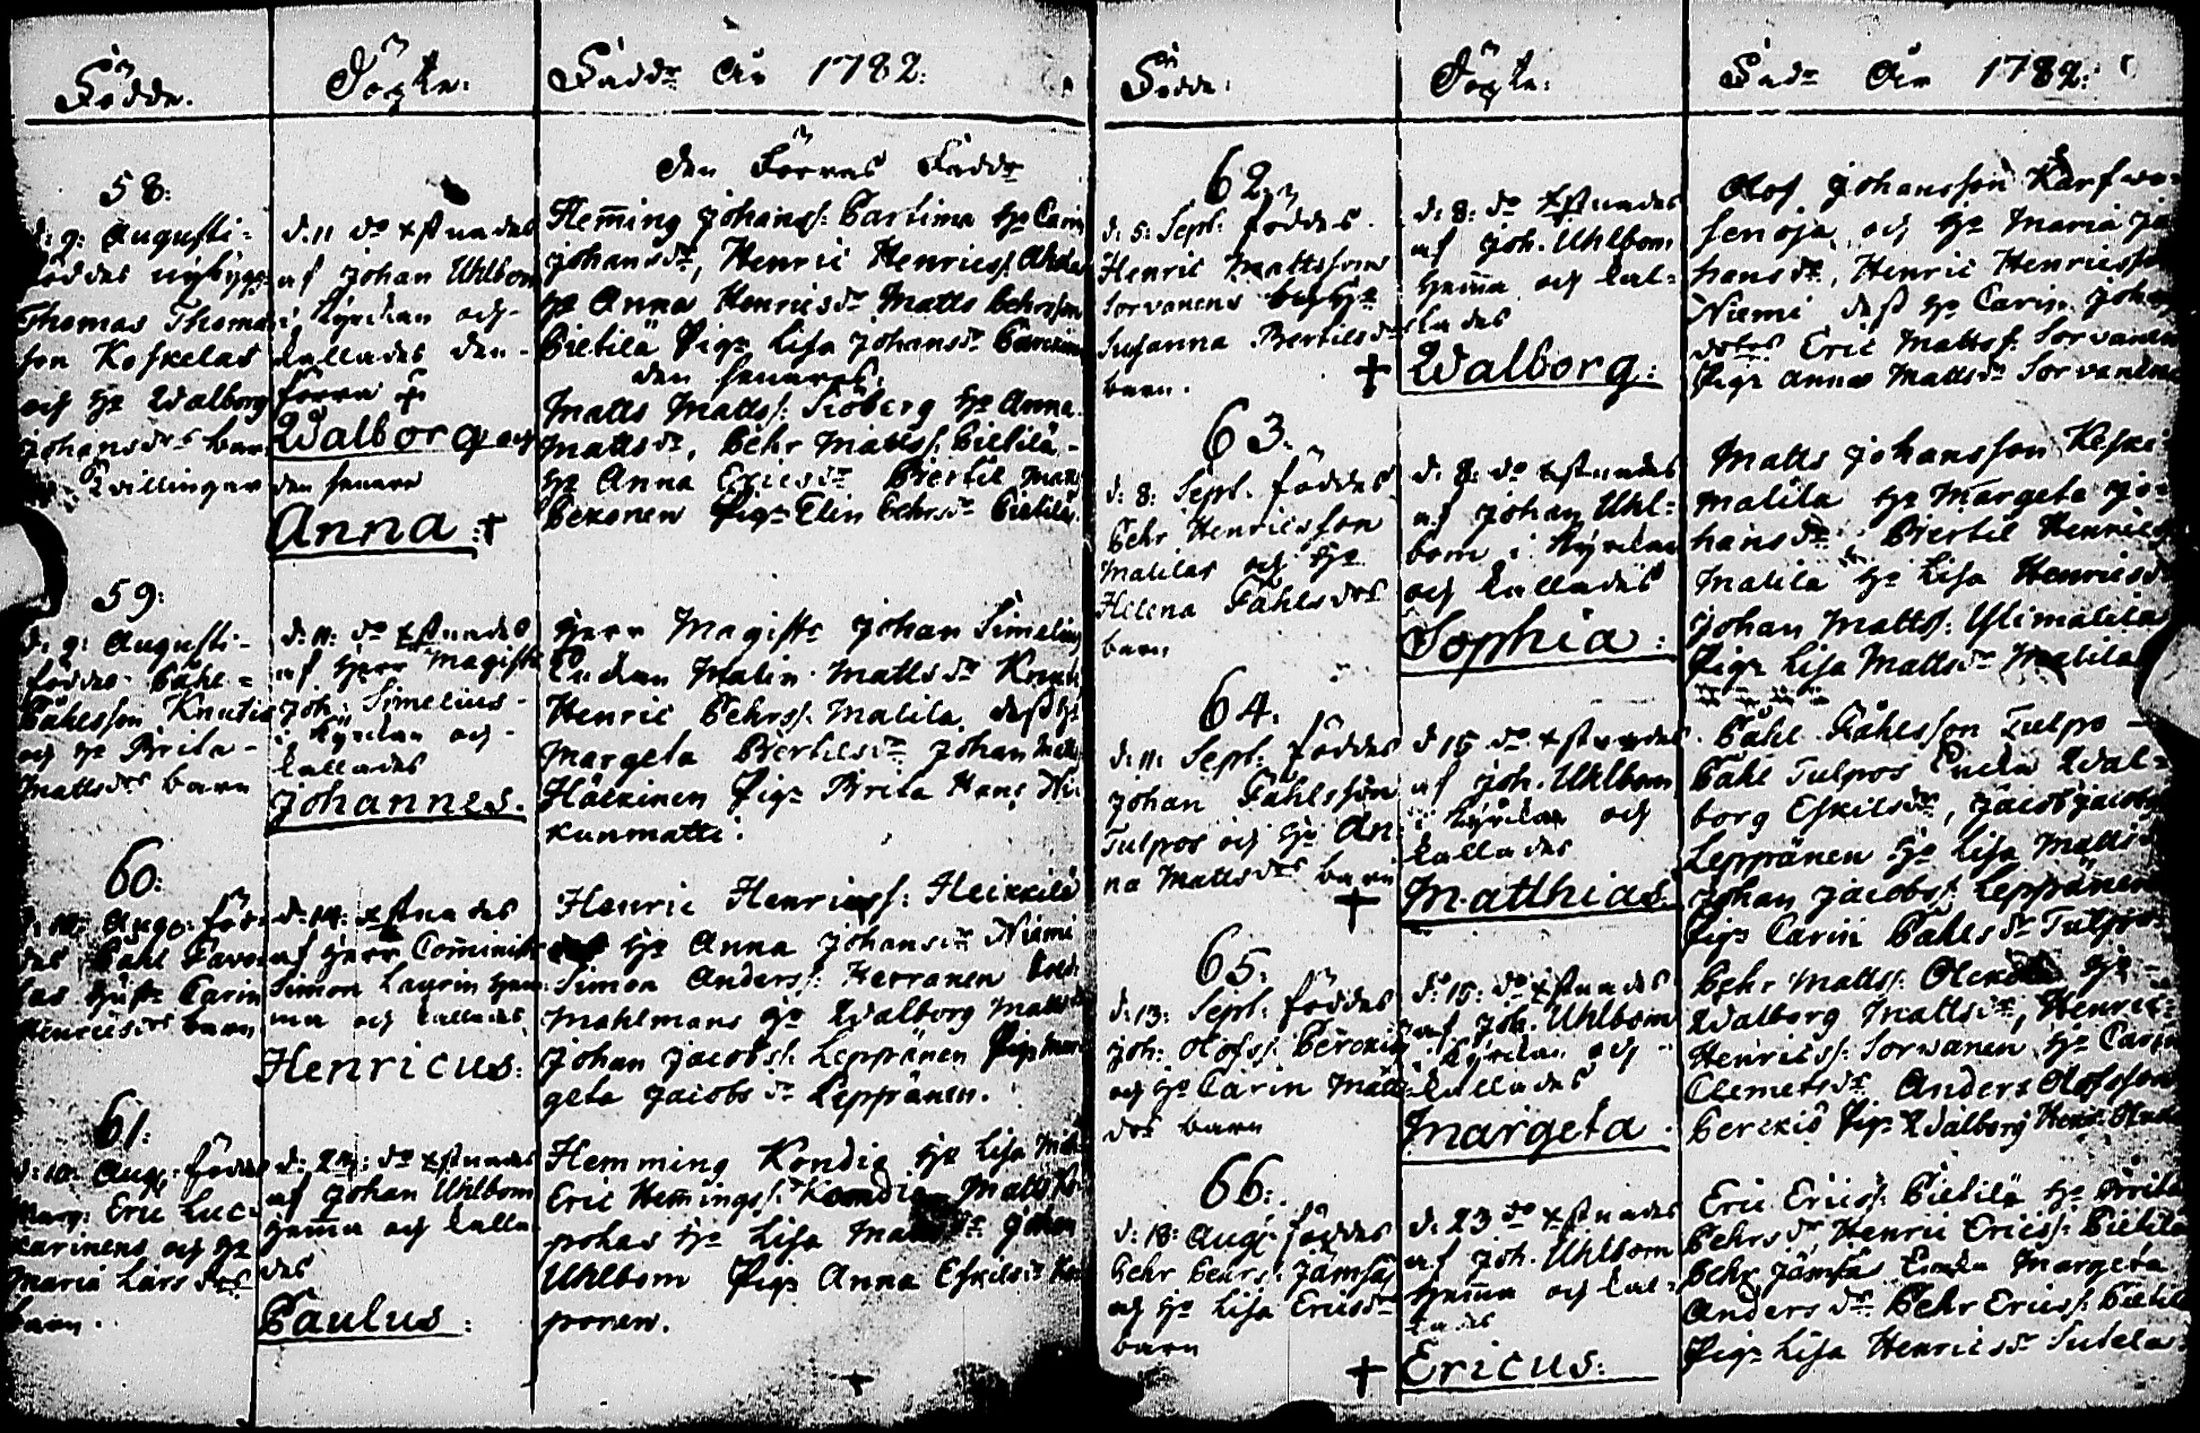 Födde.
Döpte:
Fadd:r År 1782:
58:
d: 9: Augusti
föddes nybygg
Thomas Thomas
son Koskelas
och h:o Walborg
Johansd:rs barn
Tvillingar
d. 11 d:o Xstnades
af Johan Uhlbom
i Kyrckan och
kallades den
förra
Walborg och
den senare
Anna: †
den Förras Fadd:r
Hem̄ing Johanss: Partima h:o Carin
Johansd:r, Henric Henricss:
h:o Anna Henricsd:r Matts Pehrsson
Pietilä Pig: Lisa Johansd:r
den senares:
Matts Mattss: Siöberg h:o Anna
Mattsd:r, Pehr Mattss: Pietilä
h:o Anna Ericsd:r Biertil Matts
Pekonen Pig: Elin Pehrsd:r Pietilä
59:
d: 9: Augusti
föddes Påhl
Påhlsson Knutis
och h:o Brita
Mattsd:rs barn
d: 11: d:o Xstnades
af Herr Magist:
Joh: Simelius
i Kyrckan och
kallades
Johannes.
Herr Magist:r Johan Simelius
Enckan Malin Mattsd:r Knutis
Henric Pehrss: Matila dess h:o
Margeta Biertilsd:r Johan Matts
Häckinen Pig: Brita Hans Ni
kunmatti.
60:
Aug: föd
des Påhl Pavo
las hust: Carin
Henricsd:rs barn
d: 14: Xstnades
af Herr Com̄inist:
Simon Laurin hem
ma och kallades
Henricus:
Henric Henricss: Heickilä
h:o Anna Johansd:r Niemi
Simon Anderss: Herranen
Mahlmans h:o Walborg Mattsd:r
Johan Jacobss: Leppänen Pig: Mar
geta Jacobsd:r Leppänen.
61:
d: 10: Aug: föddes
Eric Luc
karinens och h:o
Maria Larsd:rs
barn.
d: 2 : d:o Xstnades
af Johan Uhlbom
hem̄a och kalla
des
Paulus:
Hemming Kondie h:o Lisa
Eric Hem̄ingss: Kondie Matts
pohas h:o Lisa Johan
Uhlbom Pig: Anna Eskilsd:r Ko
ponen.
†
Födde:
Döpte:
Fadd:r År 1782:
62.
d: 5: Sept: föddes
Henric Mattssons
Sorvanens h:o
Susanna Bertilsd:rs
barn.
†
d: 8: d:o Xstnades
af Joh. Uhlbom
hem̄a och kal
lades
Walborg:
Olof Johansson Karfwo
senoja och h:o Maria Jo
hansd:r, Henric Henricsson
Niemi dess h:o Carin Johans
dotes Eric Mattss: Sorvanen
Pig: Anna Mattsd:r Sorvanen
63.
d: 8: Sept. föddes
Pehr Henricsson
Matilas och h:o
Helena Påhlsd:rs
barn
d: 8: d:o Xstnades
af Johan Uhl
bom i Kyrckan
och kallades
Sophia:
Matts Johansson Keski
matila h:o Margeta Jo
hansd:r Biertil Henricss
Matila h:o Lisa Henricsd:r
Johan Mattss: Ylimatila
Pig: Lisa Mattsd:r Matila
64.
d: 11: Sept: föddes
Johan Påhlsson
Tulpos och h:o An
na Mattsd:rs barn
†
d 15 d:o Xstnades
af Joh. Uhlbom
i Kyrckan och
kallades
Matthias.
Påhl Påhlsson Tulpo
Påhl Tulpos Encka Wal
borg Eskilsd:r, Jacob Jacobss
Leppänen h:o Lisa Mattsd
Johan Jacobss: Leppänen
Pig: Carin Påhlsd:r Tulpo
65:
d: 13: Sept: föddes
Joh: Olofss: Perckiö
och h:o Carin Matts
d:rs barn
d: 15: d:o Xstnades
af Joh. Uhlbom
i Kyrckan och
kallades
Margeta.
Pehr Mattss: h:o
Walborg Mattsd:r, Henric
Henricss: Sorwanen h:o Carin
Clemetsd:r Anders Olofsson
Perckiö Pig: Walborg Henr:
66:
d: 18: Aug: föddes
Pehr Pehrs: Jämsäs
och h:o Lisa Ericsd:rs
barn
†
d: 23 d:o Xstnades
af Joh. Uhlbom
hem̄a och kal
lades
Ericus:
Eric Ericss: Pietilä h:o Brita
Pehrsd:r Henric Ericss: Pietilä
Pehr Jämsäs Encka Margeta
Andersd:r Pehr Ericss: Pietilä
Pig: Lisa Henricsd:r Sutela